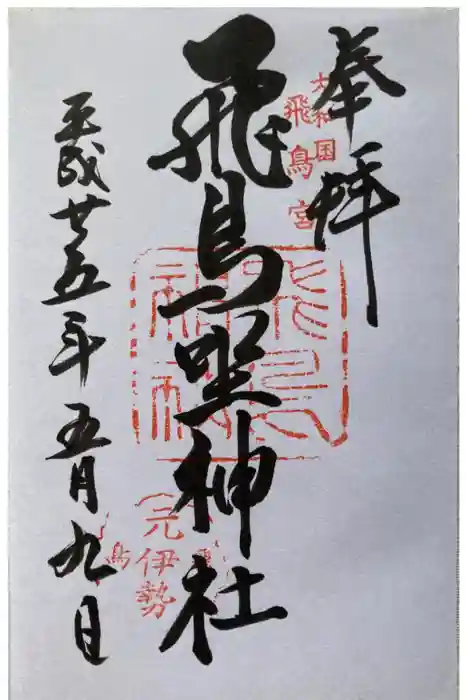 奉拝
大和国
飛鳥宮
飛鳥坐神社
飛鳥
神社
元伊勢
鳥
平成廿五年五月九日